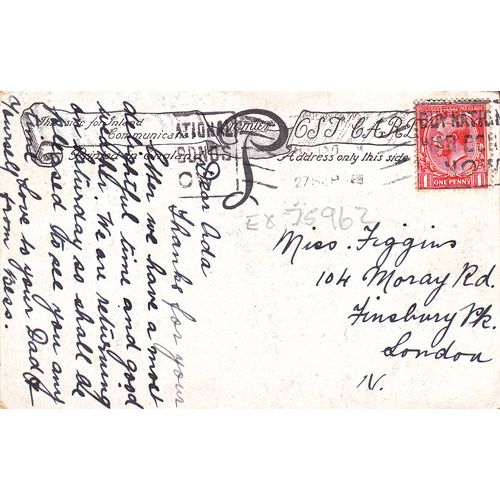 This side for Inland
Communications
Printed in England
Premier
POST CARD
Address only this side
NATIONAL
BONDS
ONE PENNY
EX 75962
Dear Ada
Thanks for your
letter we have a most
delightful time and good
weather. We are returning
on Saturday so shall be
pleased to see you any
time love to your Dad &
yourself from Bess.
Miss. Figgins
104 Moray Rd.
Finsbury Pk.
London
N.